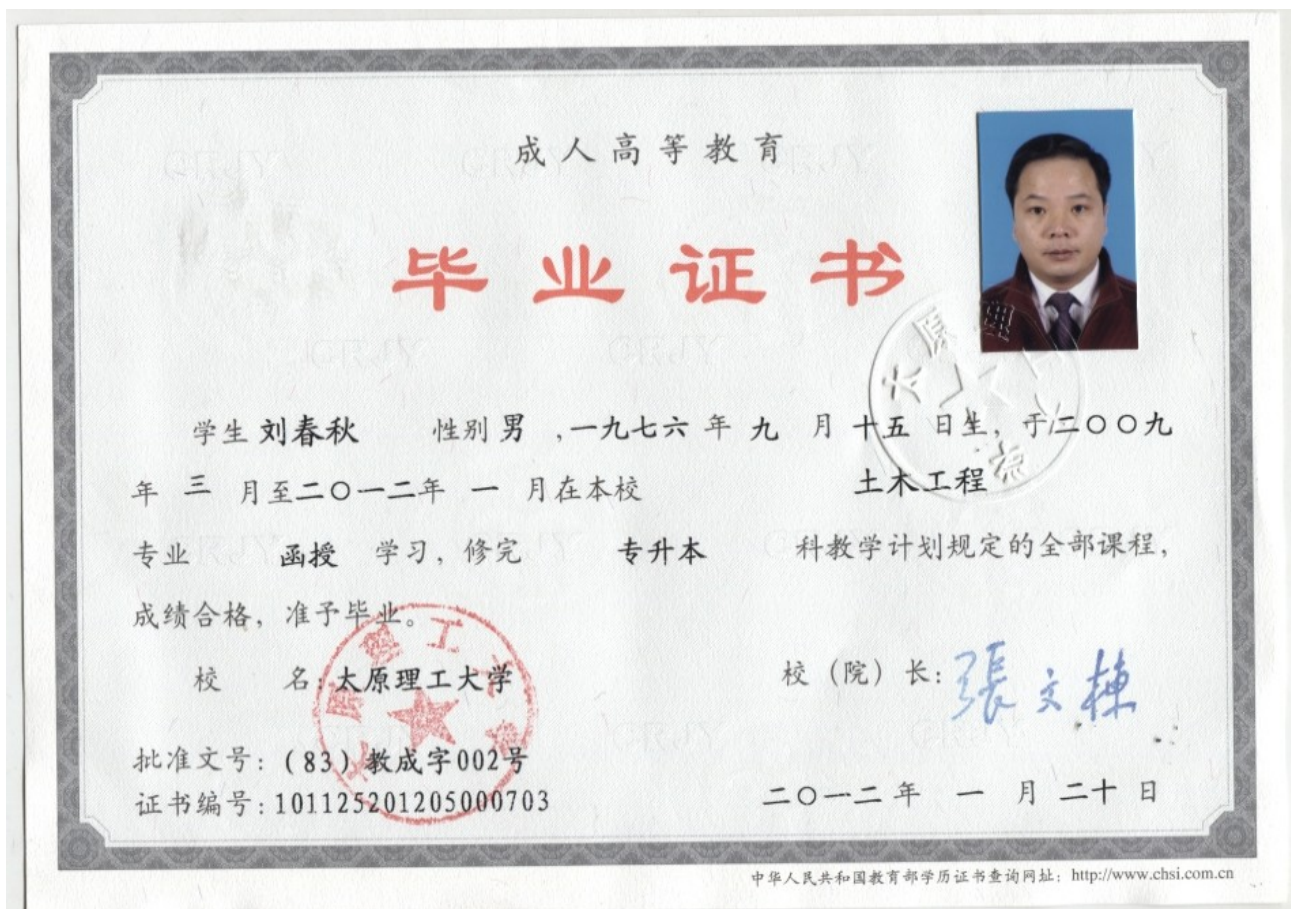 成人高等教育
毕业证书
学生 刘春秋 性别 男 ,一九七六 年 九 月 十五 日生, 于二〇〇九
年 三 月至二〇一二年 一 月在本校 土木工程
专业 函授 学习, 修完 专升本 科教学计划规定的全部课程,
成绩合格, 准予毕业。
校 名: 太原理工大学 校 (院) 长: 張文棟
批准文号: (83) 教成字002号
证书编号: 101125201205000703 二〇一二 年 一 月 二十 日
中华人民共和国教育部学历证书查询网址: http://www.chsi.com.cn
太原理工大学